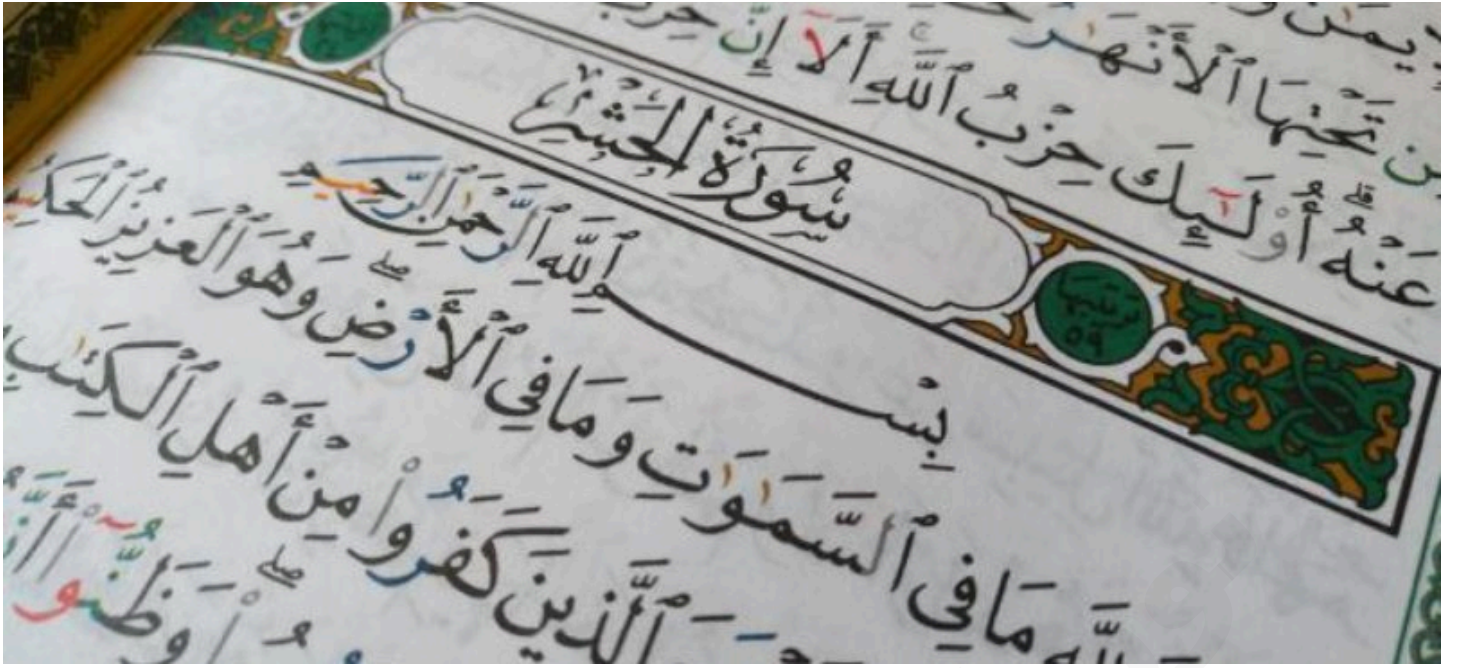 تَحْتِهَا ٱلْأَنْهَٰرُ
عَنْهُۗ أُو۟لَٰٓئِكَ حِزْبُ ٱللَّهِۚ أَلَآ إِنَّ حِزْبَ
سُورَةُ الحَشْرِ
ترتيبها ٥٩
بِسْمِ ٱللَّهِ ٱلرَّحْمَٰنِ ٱلرَّحِيمِ
مَا فِي ٱلسَّمَٰوَٰتِ وَمَا فِي ٱلْأَرْضِۖ وَهُوَ ٱلْعَزِيزُ ٱلْحَكِيمُ
ٱلَّذِينَ كَفَرُوا۟ مِنْ أَهْلِ ٱلْكِتَٰبِ
وَظَنُّوٓا۟